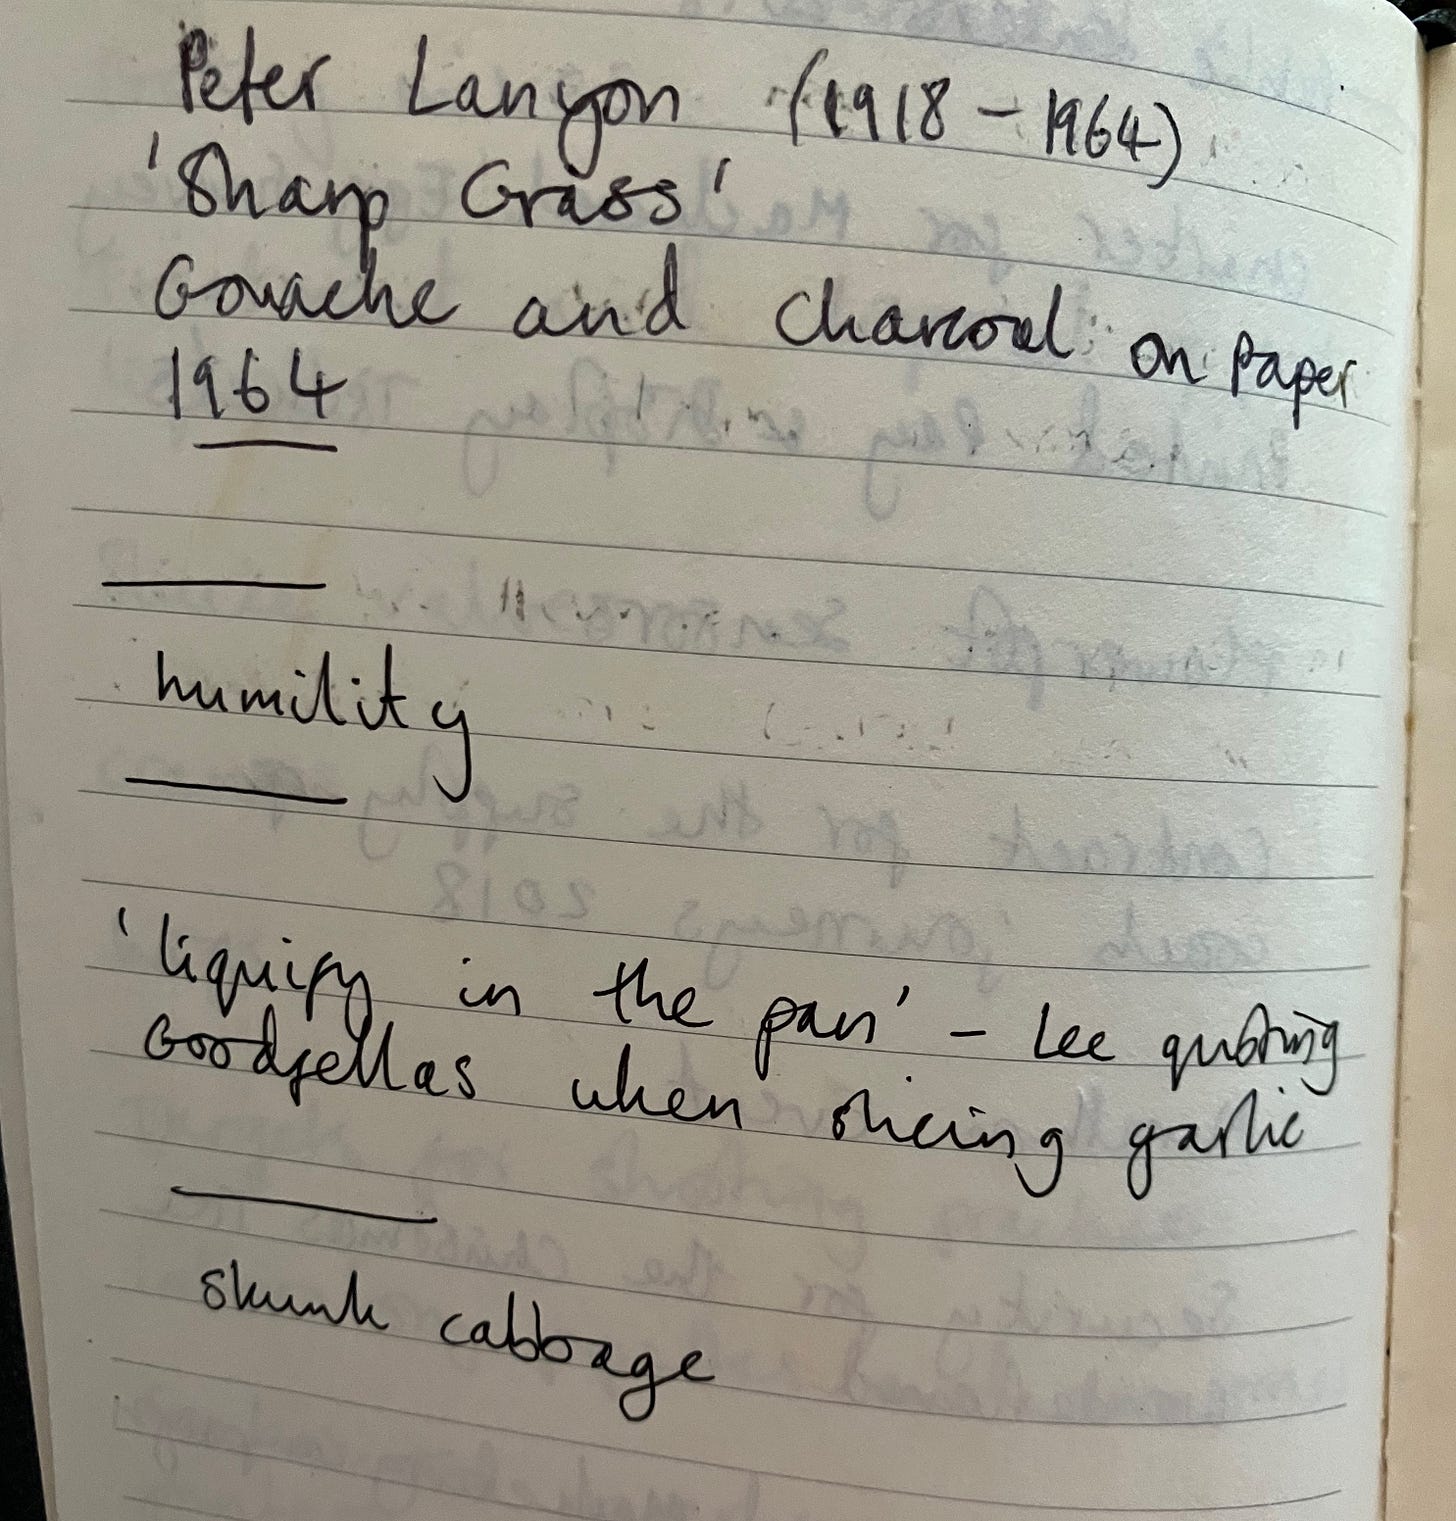 Peter Lanyon (1918 - 1964)
'Sharp Grass'
Gouache and Charcoal on Paper
1964
humility
'liquify in the pan' - Lee quoting
Goodfellas when slicing garlic
skunk cabbage